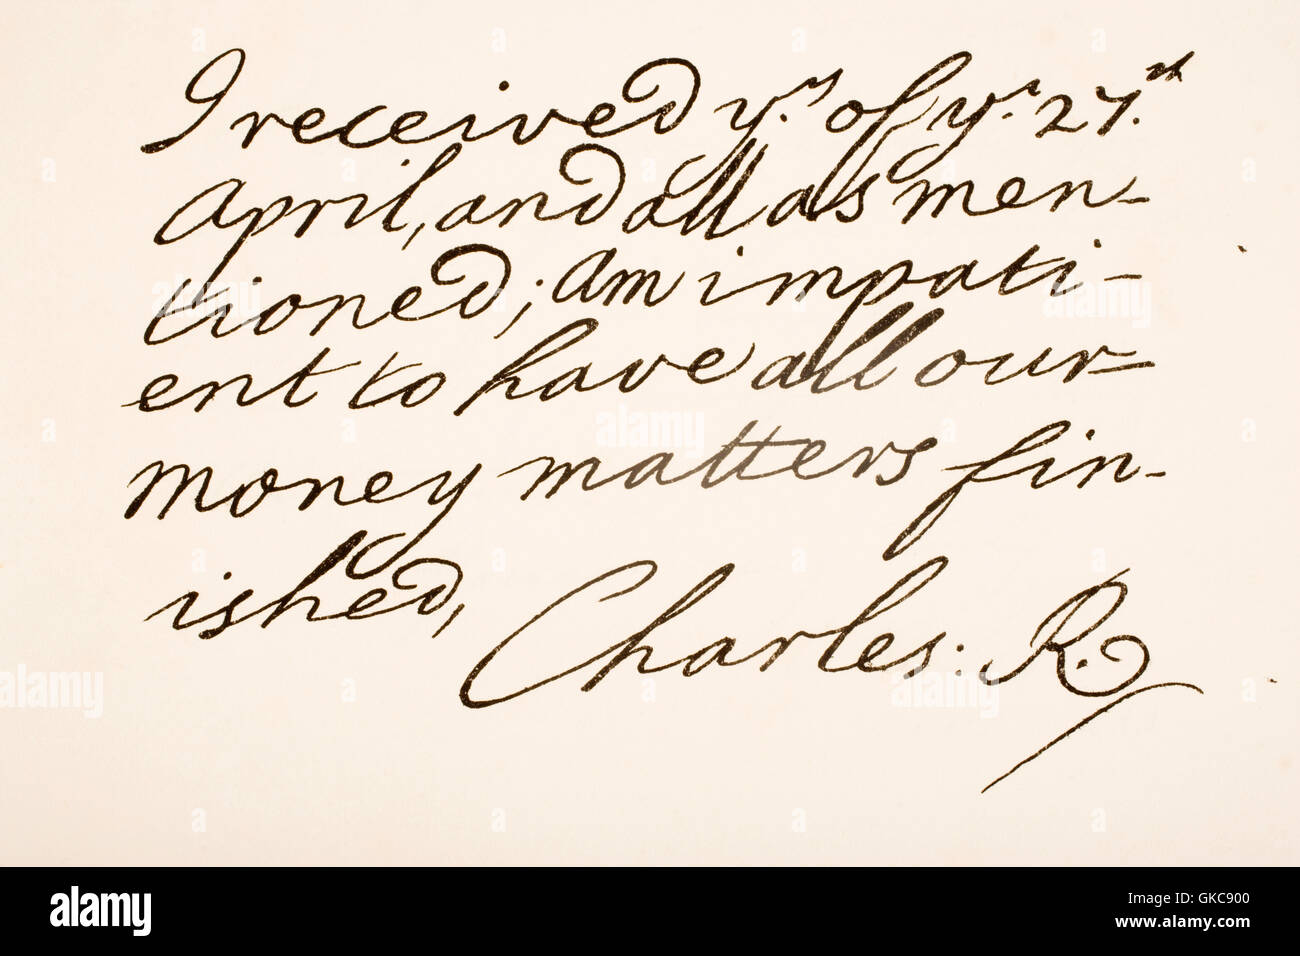 I received y.rs of y.e 27.th
April, and all as men-
tioned; am impati-
ent to have all our
money matters fin-
ished,
Charles: R.
alamy
alamy
alamy
alamy
a
a
a
a
alamy
Image ID: GKC900
www.alamy.com